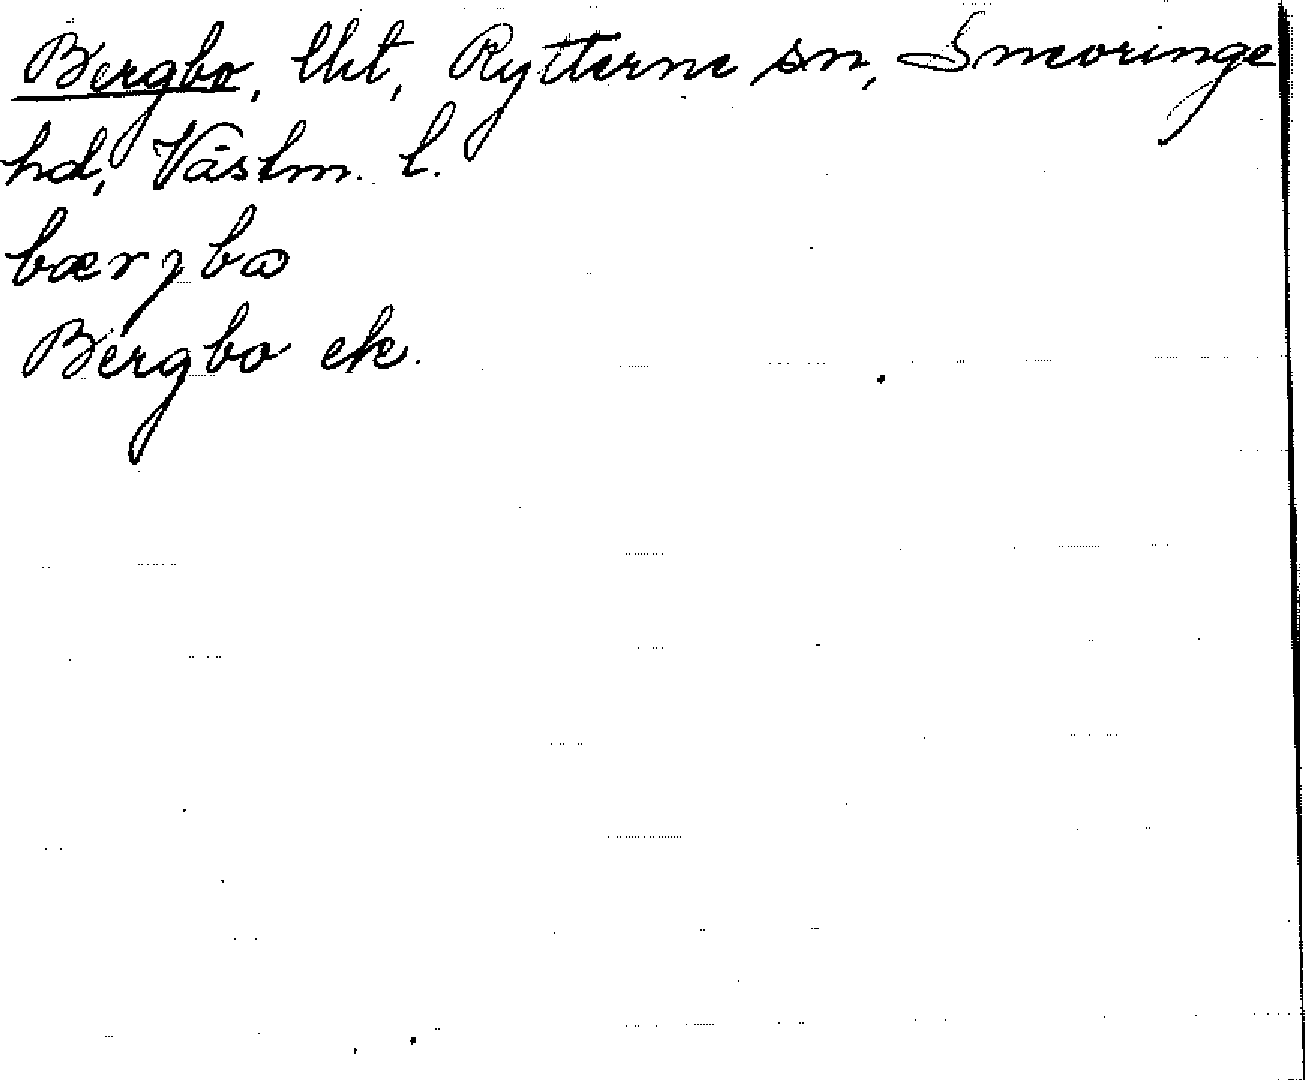 Bergbo, lht, Rytterne sn, Snevringe
hd, Västm. l.
bærjbω
Bergbo ek.